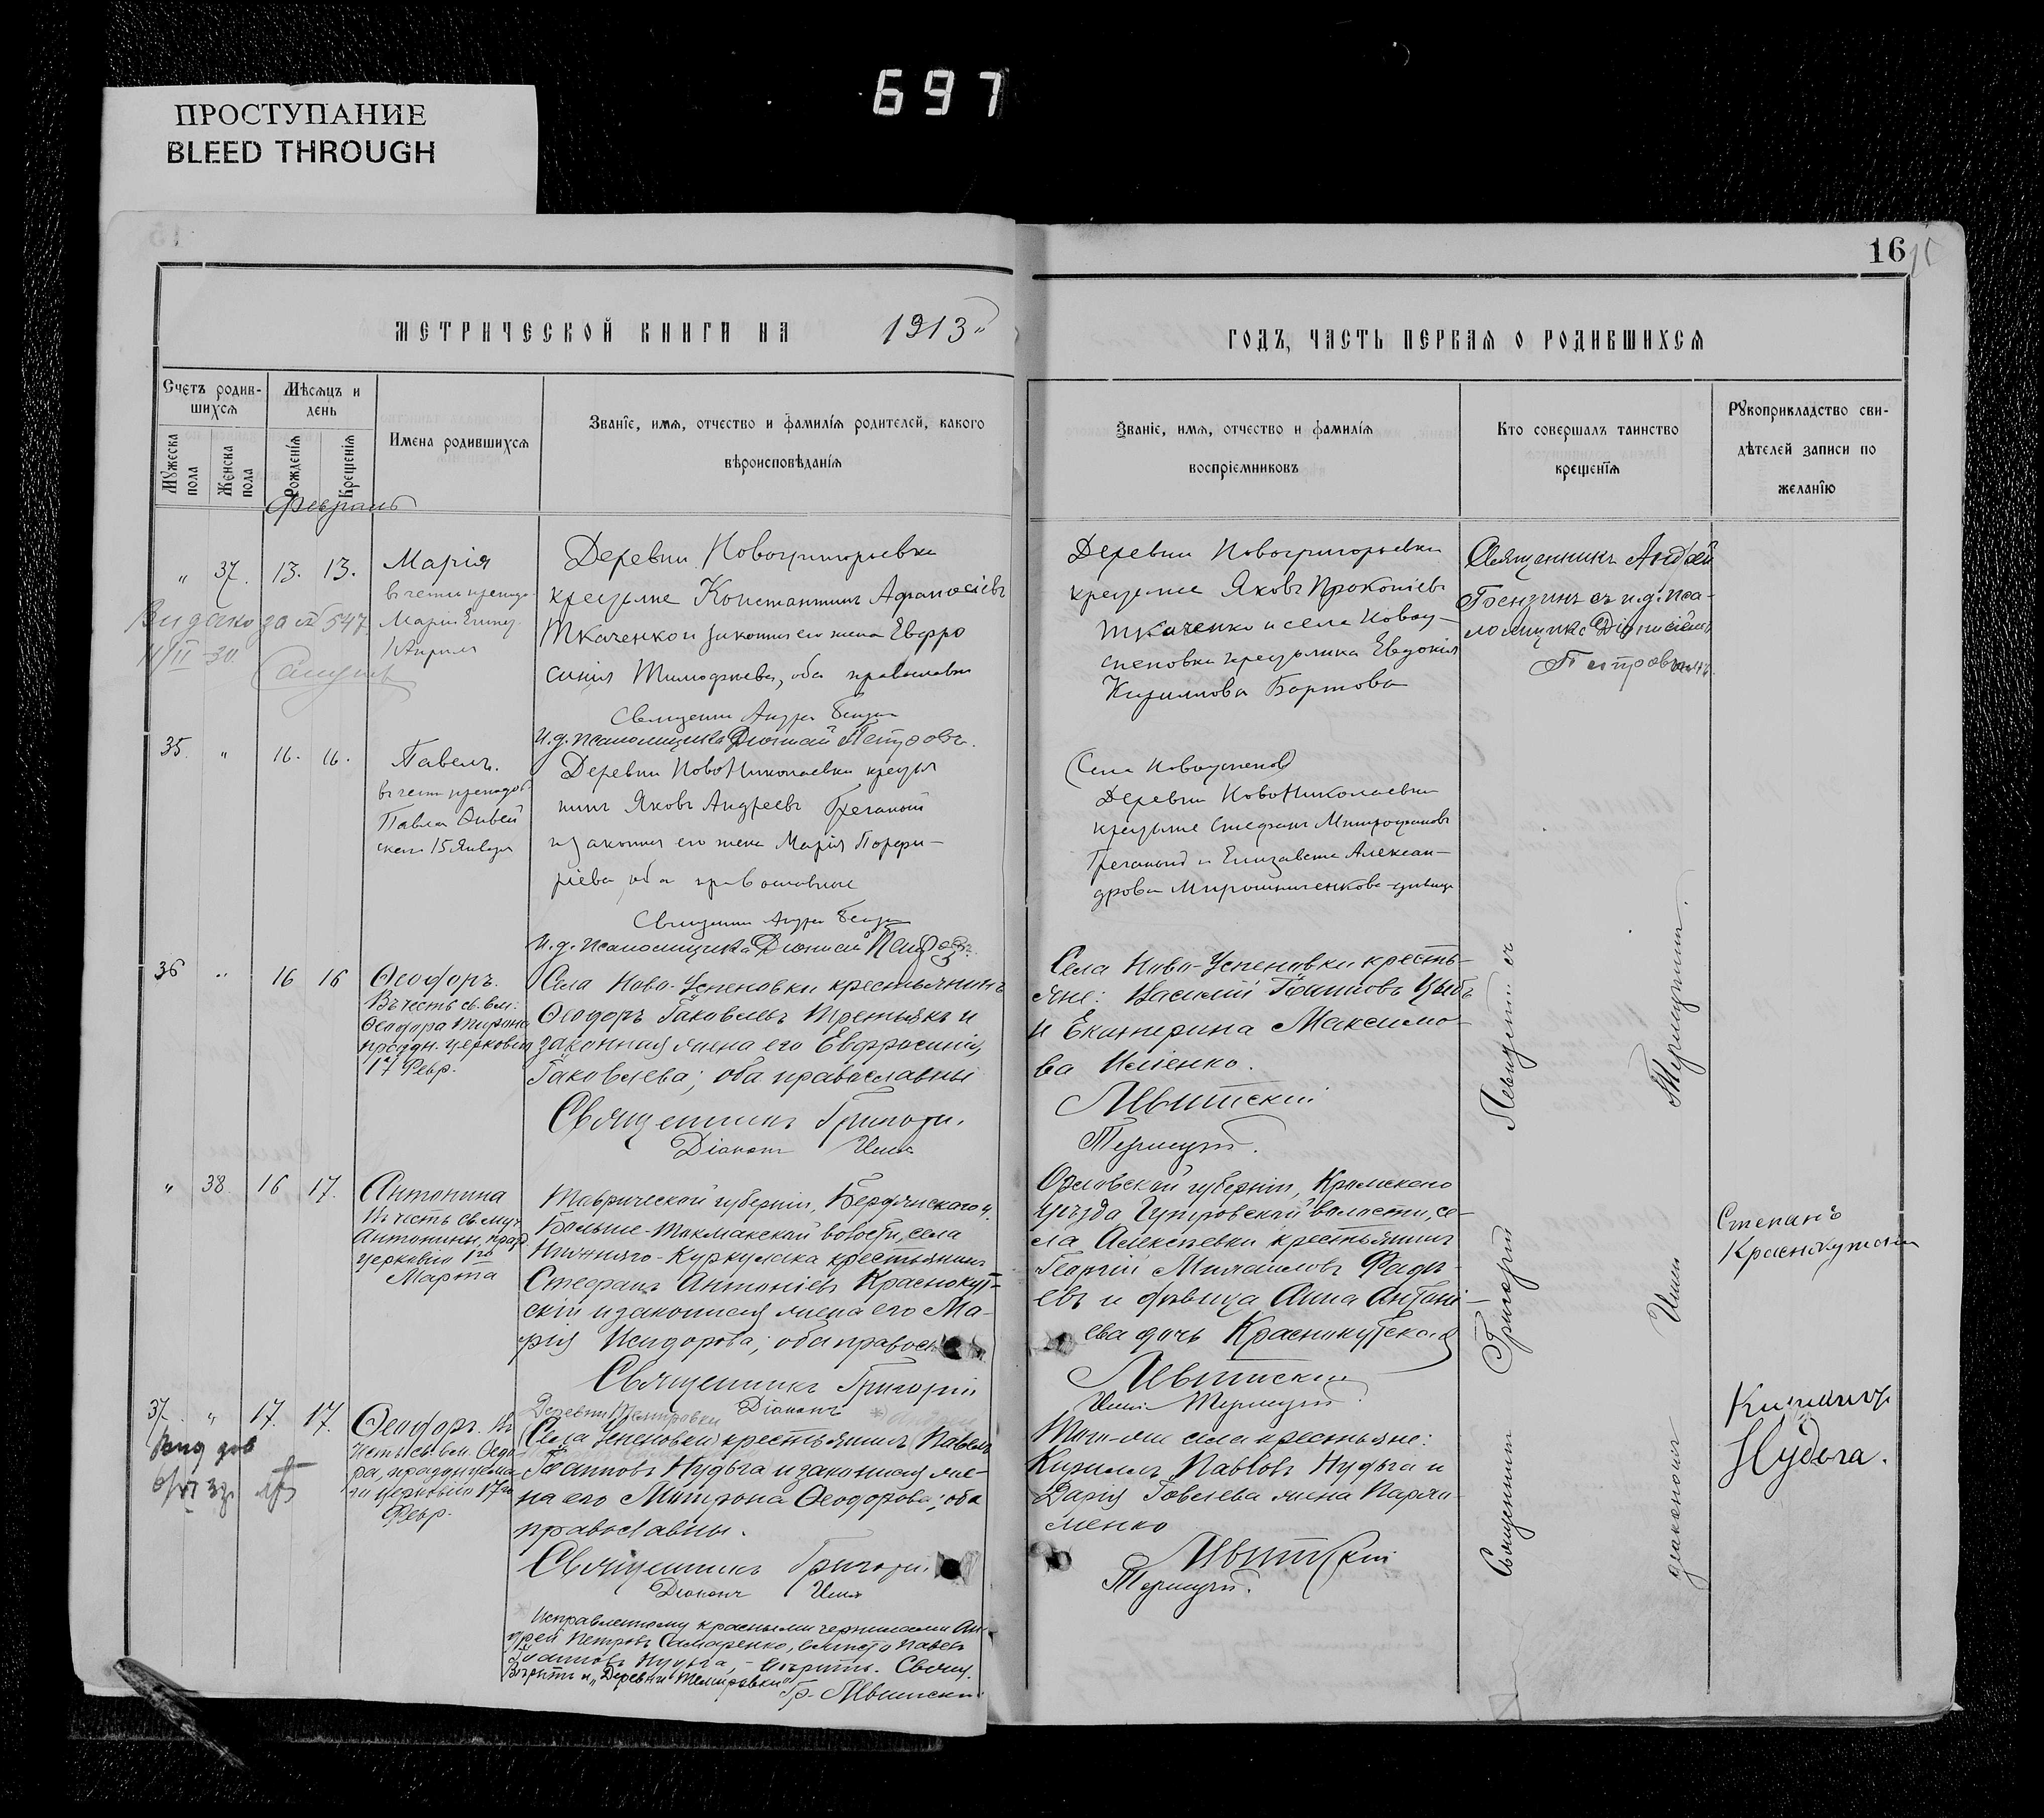 697
ПРОСТУПАНИЕ
BLEED THROUGH
16
МЕТРИЧЕСКОЙ КНИГИ НА 1913
ГОДЪ, ЧАСТЬ ПЕРВАЯ О РОДИВШИХСЯ
Счетъ родив-
шихся
Мужеска пола
Женска пола
Мѣсяцъ и
день
Рожденія
Крещенія
Имена родившихся
Званіе, имя, отчество и фамилія родителей, какого
вѣроисповѣданія
Званіе, имя, отчество и фамилія
воспріемниковъ
Кто совершалъ таинство
крещенія
Рукоприкладство сви-
дѣтелей записи по
желанію
Февраль
" 37. 13. 13.
Марія
Маріи Египет.
1 Апрѣля
за № 547
11/II-30.
Деревни Новогригорьевки
Константинъ Аѳанасіевъ
Ткаченко и законная его жена Евфро
синія Тимофеева, оба православн
И. д. псаломщика Діонисій Петровъ.
Деревни Новогригорьевки
Яковъ Прокопіевъ
Ткаченко и села Новоу-
спеновки Евдокія
Кириллова Бортова
Священникъ Андрей
Бензинъ съ и.д. пса-
ломщика Діонисіемъ
Петровымъ.
35. " 16. 16.
Павелъ.
въ честь преподоб.
Павла Ѳивей
скаго 15 Января
Деревни НовоНиколаевки
нинъ Яковъ Андреевъ
и законная его жена Марія Порфи-
ріева, оба православные
И. д. псаломщика Діонисій Петровъ.
(Села Новоуспенов)
Деревни НовоНиколаевки
Стефанъ Митрофановъ
и Елизавета Алексан-
дрова Мирошниченкова - дѣвица
36 " 16 16
Ѳеодоръ.
Въ честь св. влм:
Ѳеодора Тирона
праздн. церковію
17 Февр.
Села Ново-Успеновки крестьянинъ
Ѳеодоръ Іаковлевъ Третьякъ и
законная жена его Евфросинія
Іаковлева; оба православны
Священникъ Григорій
Діаконъ Илія
Села Ново-Успеновки кресть-
яне: Василій Іоанновъ Цыбъ
и Екатерина Максимо-
ва Иліенко.
Левитскій
" 38. 16 17.
Антонина
Въ честь св. муч.
Антонины, празд.
церковію 1го
Марта
Таврической губерніи, Бердянскаго у.
Больше-Токмакской волости, села
Нижняго-Куркулака крестьянинъ
Стефанъ Антоніевъ Краснокут-
скій и законная жена его Ма-
рія Исидорова; оба правосл
Священникъ Григорій
Діаконъ
Орловской губерніи, Кромскаго
уѣзда, Гутровской волости, се-
ла Алексѣевки крестьянинъ
Георгій Михайловъ Фаде-
евъ и дѣвица Анна Антоні-
ева дочь Краснокутская
Левитскій
Степанъ
Краснокутскій
37. " 17. 17.
Ѳеодоръ. Въ
честь св. влм. Ѳеодо-
ра, празднуема-
го церковію 17го
Февр.
Деревни Темировки
(Села Успеновки) крестьянинъ Павелъ
Іоанновъ Нудьга и законная же-
на его Матрона Ѳеодорова; оба
православны.
Священникъ Григорій
Діаконъ Илія
Того-же села крестьяне:
Кириллъ Павловъ Нудьга и
Дарія Іовлева жена Пархо-
менко
Левитскій
Кирилъ
Нудьга.
Священникъ Григорій Левитскій съ
діакономъ Иліею
Исправленному красными чернилами Ан-
дрей Петровъ Самаренко, вмѣсто Павелъ
Іоанновъ Нудьга, - вѣрить. Свящ.
Вѣрить и „Деревни Темировки"
Гр. Левитскій